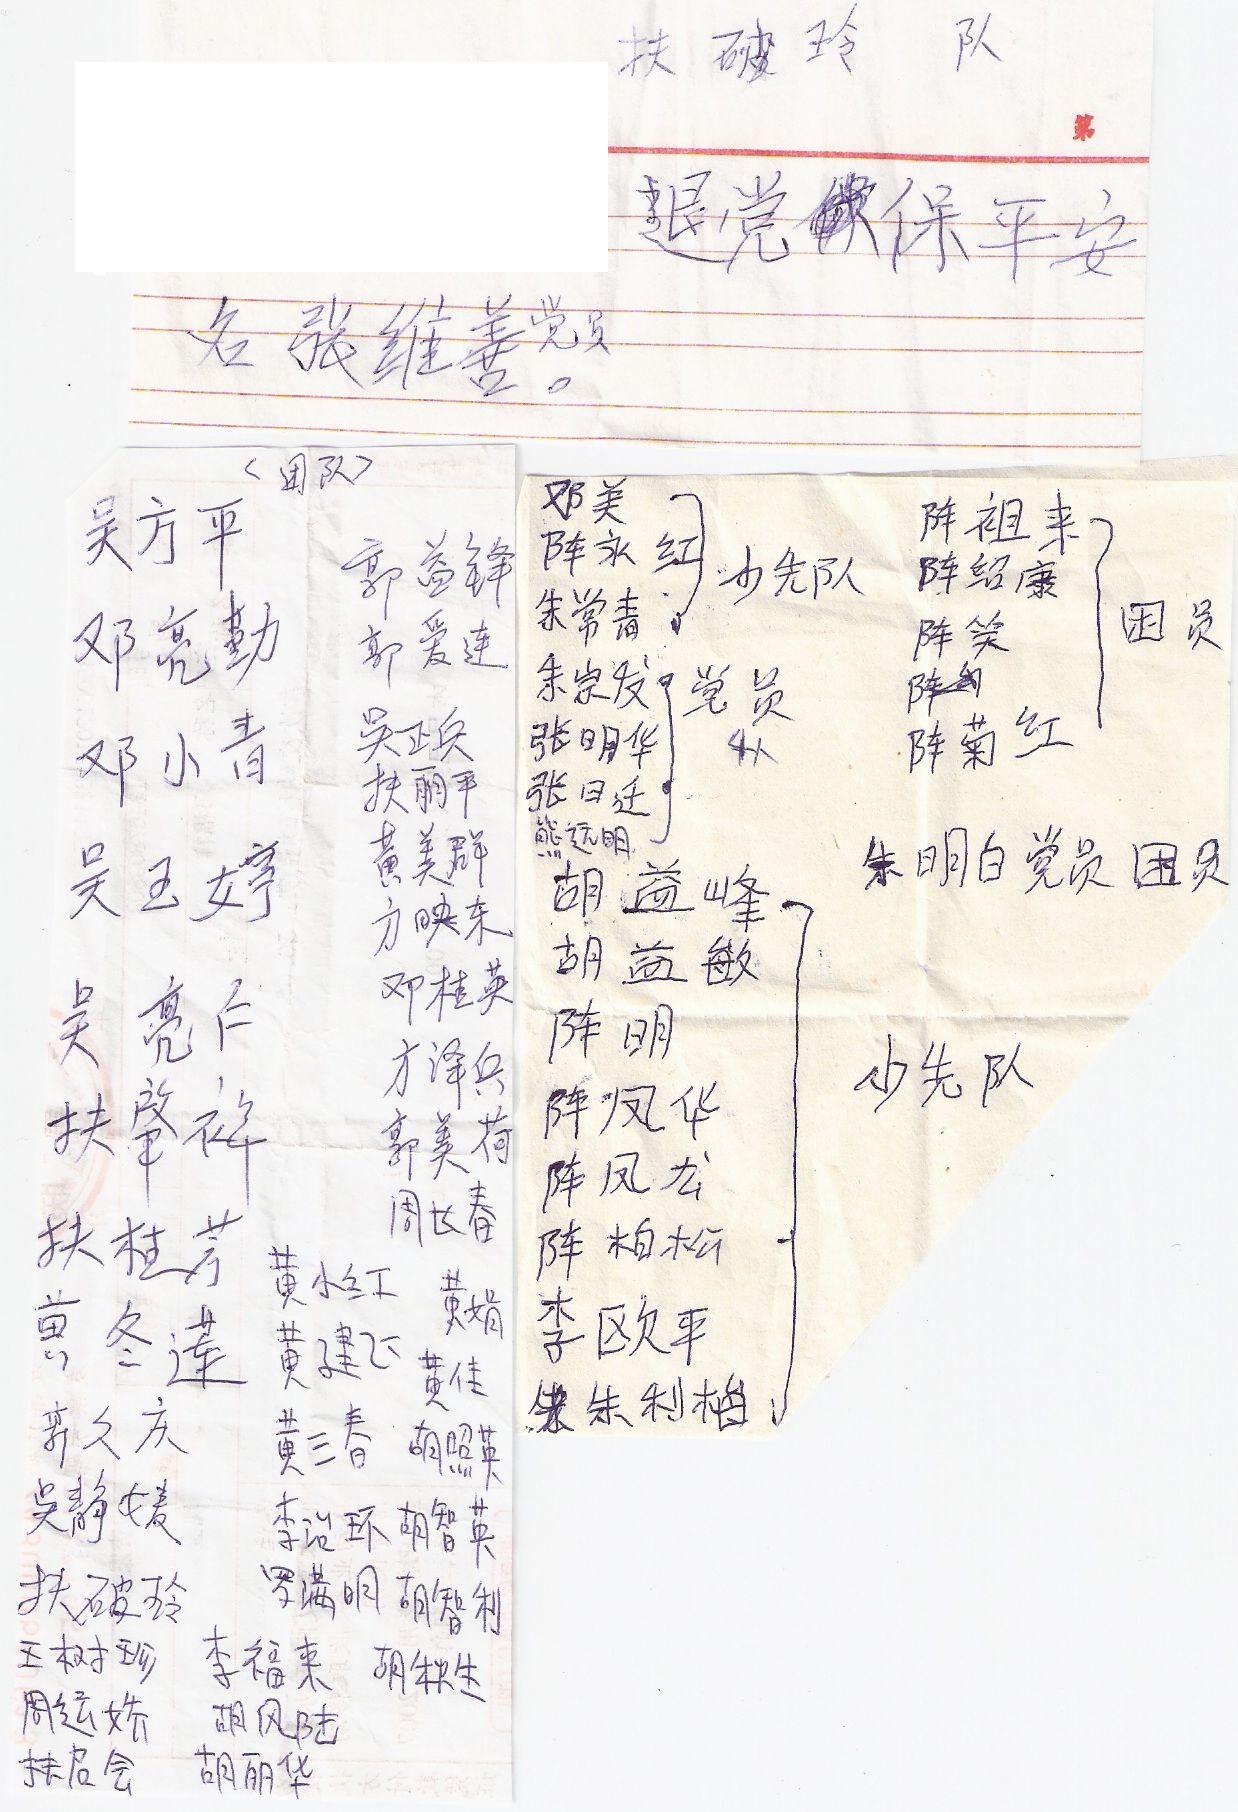 扶破玲 队
第
退党保平安
名张维善。党员
〈团队〉
吴方平
邓亮勤
邓小青
吴玉婷
吴亮仁
扶肇祥
扶桂芹
黄冬莲
郭久庆
吴静媛
扶破玲
王树珍
扶启会
郭益锋
郭爱连
吴正兵
扶丽平
黄美群
方映东
邓桂英
方泽兵
郭美荷
周长春
黄小红
黄建飞
黄三春
李治环
罗满明
李福来
胡风陆
胡丽华
黄娟
黄佳
胡照英
胡智英
胡智利
胡秋生
邓美
阵永红
朱常青
少先队
朱宗发
张明华
张日迁
熊远明
党员
队
胡益峰
胡益敏
阵明
阵凤华
阵凤龙
阵柏松
李欧平
朱利柏
少先队
阵祖来
阵绍康
阵笑
阵菊红
团员
朱明白党员团员